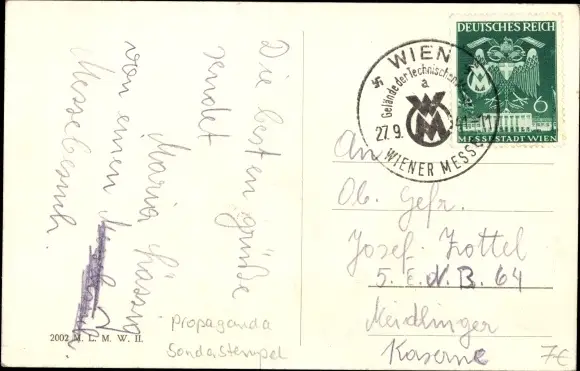 Die besten grüße
sendet
Maria Lässig
von einem
Messebesuch.
2002 M. L. M. W. II.
Propaganda
Sonderstempel
WIEN
Gelände der Technischen
a
WM
27.9. 41-11
WIENER MESSE
DEUTSCHES REICH
WM
6
MESSESTADT WIEN
An
Ob. Gefr.
Josef Zottel
5. E.N.B. 64
Meidlinger
Kaserne
7€